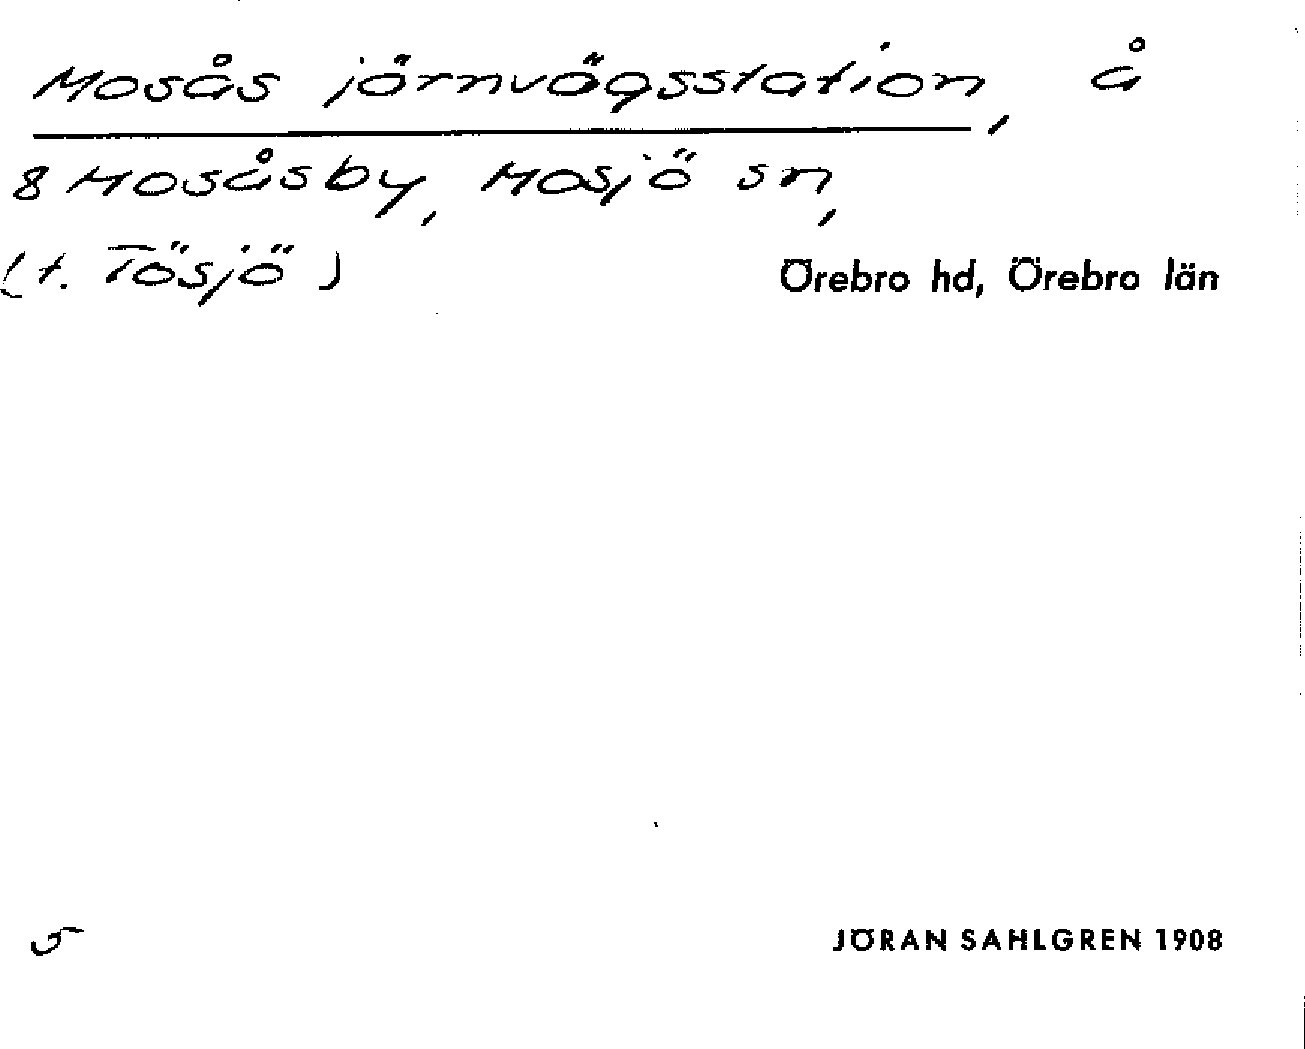 Mosås järnvägsstation, å
8 Mosåsby, Mosjö sn,
(t. Tösjö)
Örebro hd, Örebro län
5
JÖRAN SAHLGREN 1908